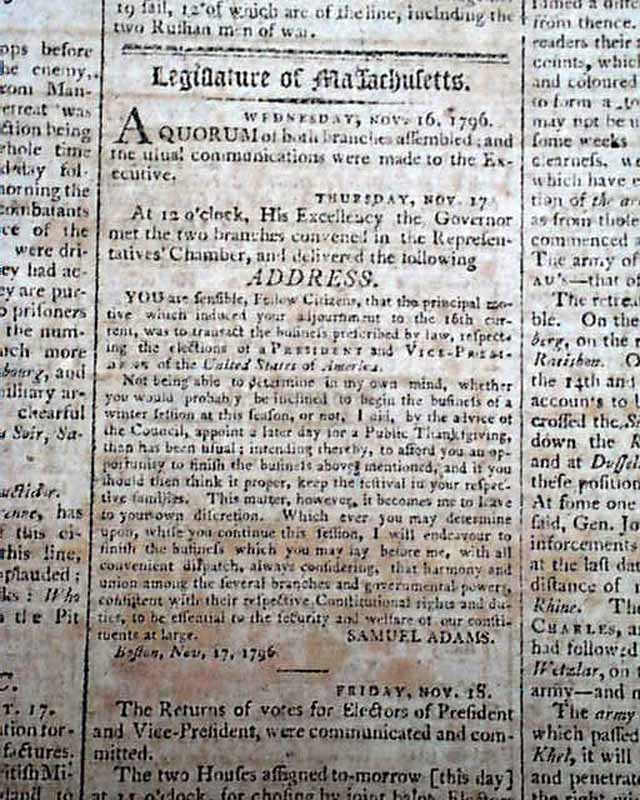 19 sail, 12 of which are of the line, including the
two Ruſſian men of war.
Legiſlature of Maſſachuſetts.
WEDNESDAY, NOV. 16, 1796.
A QUORUM of both branches aſſembled; and
the uſual communications were made to the Ex-
ecutive.
THURSDAY, NOV. 17.
At 12 o'clock, His Excellency the Governor
met the two branches convened in the Repreſen-
tatives' Chamber, and delivered the following
ADDRESS.
YOU are ſenſible, Fellow Citizens, that the principal mo-
tive which induced your adjournment to the 16th cur-
rent, was to tranſact the buſineſs preſcribed by law, reſpect-
ing the elections of a PRESIDENT and VICE-PRESI-
DENT of the United States of America.
Not being able to determine in my own mind, whether
you would probably be inclined to begin the buſineſs of a
winter ſeſſion at this ſeaſon, or not, I did, by the advice of
the Council, appoint a later day for a Public Thankſgiving,
than has been uſual; intending thereby, to afford you an op-
portunity to finiſh the buſineſs above mentioned, and if you
ſhould then think it proper, keep the feſtival in your reſpec-
tive families. This matter, however, it becomes me to leave
to your own diſcretion. Which ever you may determine
upon, while you continue this ſeſſion, I will endeavour to
finiſh the buſineſs which you may lay before me, with all
convenient diſpatch, always conſidering, that harmony and
union among the ſeveral branches and governmental powers,
conſiſtent with their reſpective Conſtitutional rights and du-
ties, to be eſſential to the ſecurity and welfare of our conſti-
tuents at large. SAMUEL ADAMS.
Boſton, Nov, 17, 1796.
FRIDAY, NOV. 18.
The Returns of votes for Electors of Preſident
and Vice-Preſident, were communicated and com-
mitted.
The two Houſes aſſigned to-morrow [this day]
at 11 o'clock, for chooſing by joint ballot, Elect
ops before
he enemy,
rom Man-
retreat was
ction being
whole time
day fol-
morning the
combatants
ce of the
were dri-
ey had ac-
ey are pur-
o priſoners
the num-
uch more
bourg, and
military ar-
chearful
u Soir, Sa-
enne, has
this ci-
this line,
pplauded;
ks: Who
the Pit
C.
T. 17.
ation for-
factures.
itiſh Mi-
land to
from thence.
readers their
counts, which
and coloured
to form a
may not be u
ſome weeks
clearneſs, we
which have
tion of the ar
as from thoſe
commenced
The army of
AU's—that o
The retrea
ble. On the
berg, on the
Ratiſbon.
the 14th and
accounts to
croſſed the
down the
and at Duſſel
theſe poſition
At ſome one
ſaid, Gen. Jo
inforcements
at the laſt dat
diſtance of
Rhine. Th
CHARLES, a
had followed
Wetzlar, on
army—and n
The army
which paſſed
Khel, it will
and penetrate